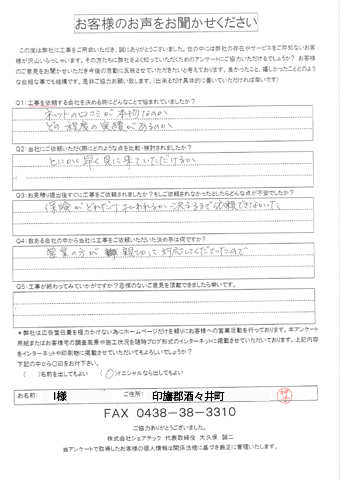 お客様のお声をお聞かせください
この度は弊社に工事をご用命いただき、誠にありがとうございました。世の中には弊社の存在やサービスをご存知ないお客
様が沢山いらっしゃいます。その方たちに弊社をよく知っていただくためのアンケートにご協力いただけるでしょうか？お客様
のご意見をお聞かせいただき今後の活動に反映させていただきたいと考えております。良かったこと、嬉しかったことどのよう
な些細な事でも結構です。是非ご協力お願い致します。（出来るだけ具体的に書いていただければ幸いです）
Q1：工事を依頼する会社を決める時にどんなことで悩まれていましたか？
ネットの口コミが本物なのか
どの程度の実績があるのか
Q2：当社にご依頼いただく際にどのような点を比較・検討されましたか？
とにかく早く見に来ていただけるか
Q3：お見積り提出後すぐに工事をご依頼されましたか？もしご依頼されなかったとしたらどんな点が不安でしたか？
保険がどれだけ払われるか決まるまで依頼できないた
Q4：数ある会社の中から当社に工事をご依頼いただいた決め手は何ですか？
営業の方が親切に対応してくださったので
Q5：工事が終わってみていかがですか？忌憚のないご意見を頂戴できましたら幸いです。
＊弊社は広告宣伝費を極力かけない為にホームページだけを頼りにお客様への営業活動を行っております。本アンケート
用紙またはお客様宅の調査風景や施工状況を随時ブログ形式のインターネットに掲載させていただいております。上記内容
をインターネットや印刷物に掲載させていただいてもよろしいでしょうか？
下記の中から〇印をお付け下さい。
（　）名前を出してもよい　（〇）イニシャルなら出してもよい
お名前：　I様　ご住所：　印旛郡酒々井町
FAX 0438-38-3310
ご協力ありがとうございました。
株式会社シェアテック 代表取締役 大久保 誠二
当アンケートで取得したお客様の個人情報は関係法規に基づき厳正に管理いたします。